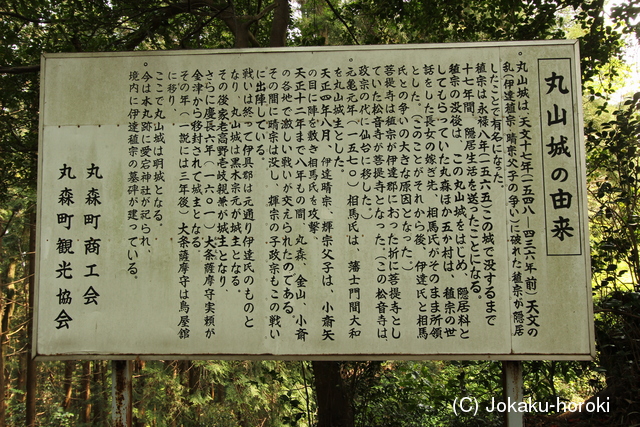 丸山城の由来
・丸山城は、天文十七年(一五四八—四三六年前)天文の
乱(伊達稙宗、晴宗父子の争い)に破れた稙宗が隠居
したことで有名になった。
稙宗は永禄八年(一五六五)この城で没するまで
十七年間、隠居生活を送ったことになる。
稙宗の没後は、この丸山城をはじめ、隠居料と
してもらっていた丸森ほか五か村は、稙宗の世
話をした長女の嫁ぎ先、相馬氏がそのまま所領
とした。(このことがそれから後、伊達氏と相馬
氏との争いの大きな原因となった。)
菩提寺は稙宗が伊達郡におった折に菩提寺とし
ていた松音寺が菩提寺となった(この松音寺は、
政宗の代に仙台に移した。)
・元亀元年(一五七〇)相馬氏は、藩士門間大和
を丸山城主とした。
天正四年八月、伊達晴宗、輝宗父子は、小斎矢
の目に陣を敷き相馬氏を攻撃、
天正十二年まで八年もの間、丸森、金山、小斎
の各地で激しい戦いが交えられたのである。
その間に晴宗は没し、輝宗の子政宗もこの戦い
に出陣している。
戦いは終って伊具郡は元通り伊達氏のものと
なり、丸山城は黒木宗元が城主となる。
その後家老高野壱岐親兼が城主となり、
さらに慶長六年(一六〇一)大条薩摩守実頼が
金津から移封されて城主となる。
その年(一説には三年後)大条薩摩守は鳥屋館
に移り、
ここで丸山城は明城となる。
・今は本丸跡に愛宕神社が祀られ、
境内に伊達稙宗の墓碑が建っている。
丸森町商工会
丸森町観光協会
(C) Jokaku-horoki